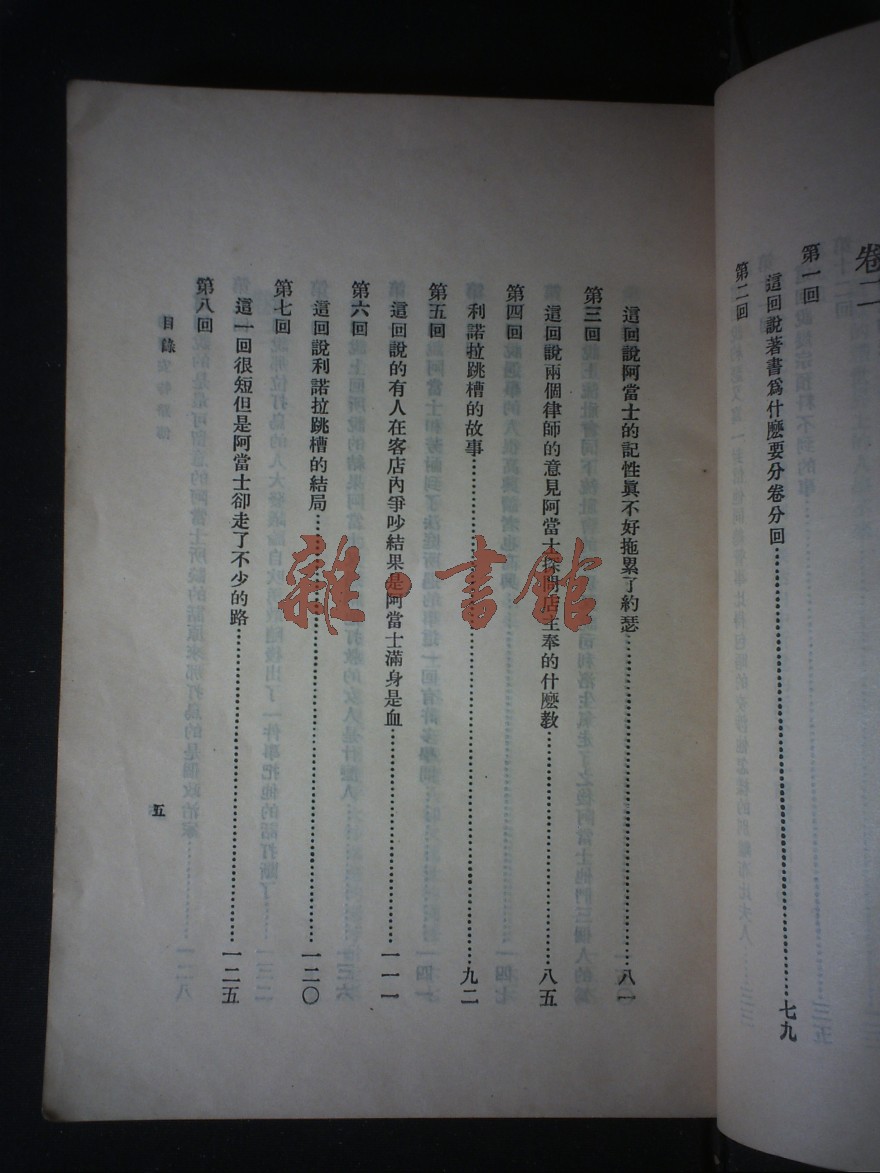 卷二
第一回
這回說著書爲什麽要分卷分回……七九
第二回
這回說阿當士的記性眞不好拖累了約瑟……八一
第三回
這回說兩個律師的意見阿當士探問店主奉的什麽敎……八五
第四回
利諾拉跳槽的故事……九二
第五回
這回說的有人在客店內爭吵結果是阿當士滿身是血……一一一
第六回
這回說利諾拉跳槽的結局……一二〇
第七回
這一回很短但是阿當士卻走了不少的路……一二五
第八回
目錄
五
雜·書館